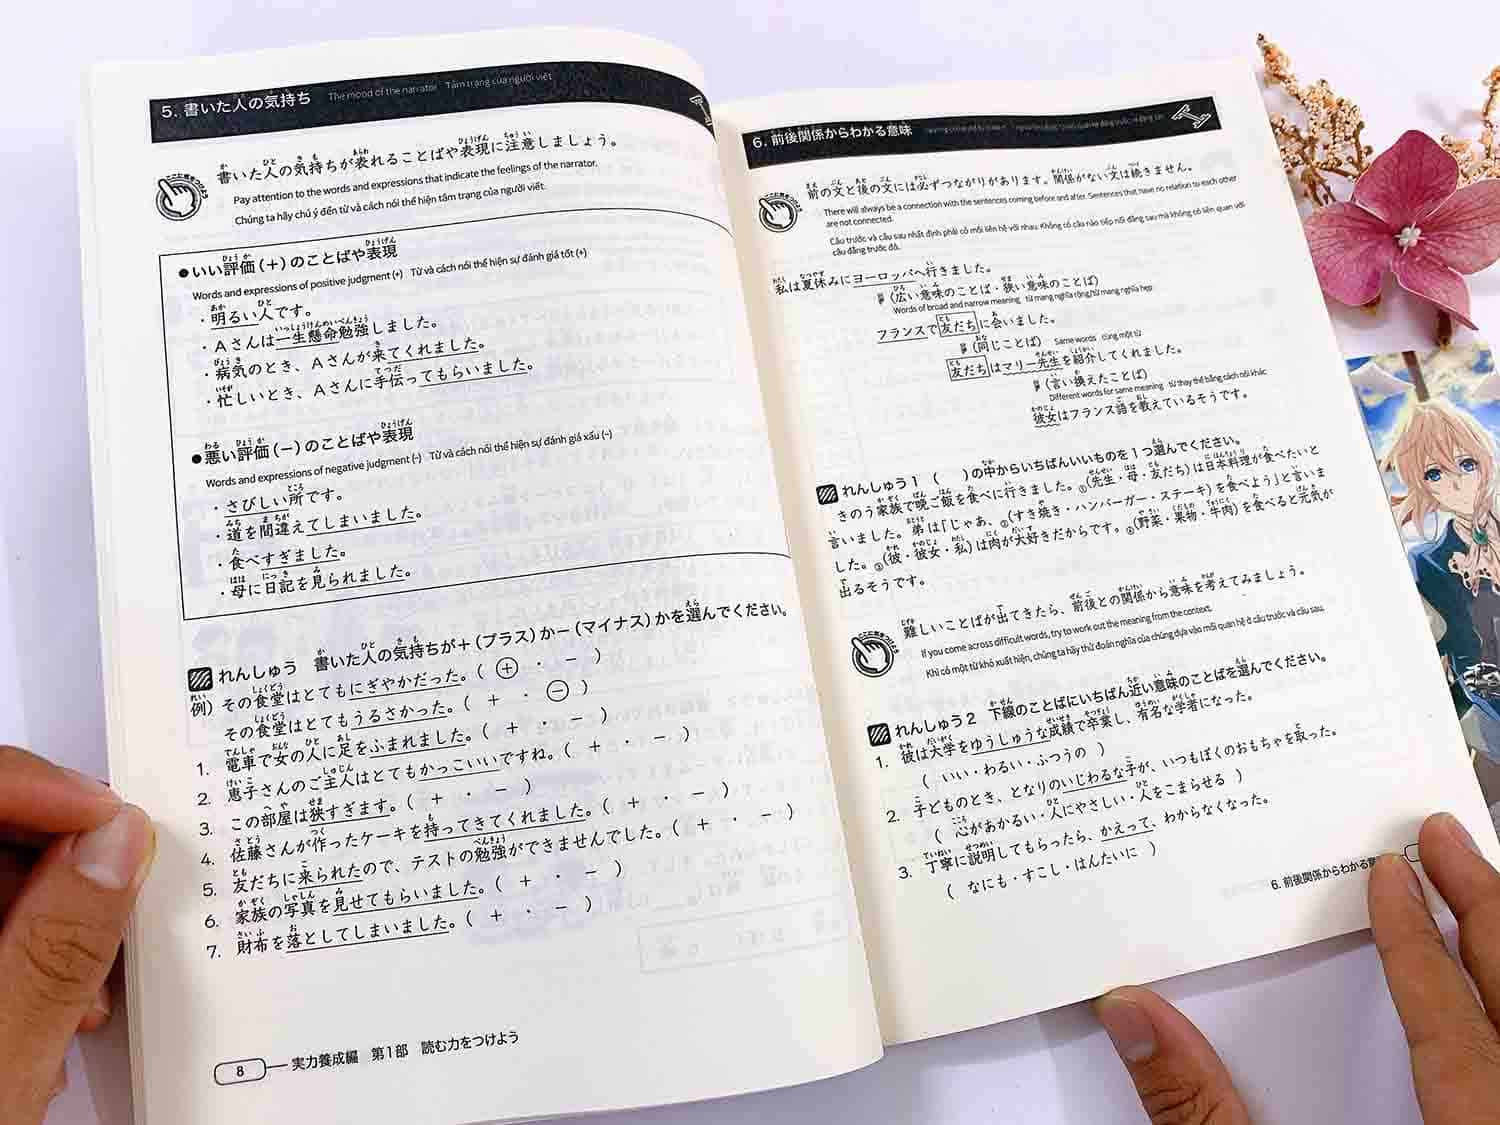 5. 書いた人の気持ち The mood of the narrator Tâm trạng của người viết
書いた人の気持ちが表れることばや表現に注意しましょう。
Pay attention to the words and expressions that indicate the feelings of the narrator.
Chúng ta hãy chú ý đến từ và cách nói thể hiện tâm trạng của người viết.
●いい評価(+)のことばや表現
Words and expressions of positive judgment (+) Từ và cách nói thể hiện sự đánh giá tốt (+)
・明るい人です。
・Aさんは一生懸命勉強しました。
・病気のとき、Aさんが来てくれました。
・忙しいとき、Aさんに手伝ってもらいました。
●悪い評価(-)のことばや表現
Words and expressions of negative judgment (-) Từ và cách nói thể hiện sự đánh giá xấu (-)
・さびしい所です。
・道を間違えてしまいました。
・食べすぎました。
・母に日記を見られました。
れんしゅう 書いた人の気持ちが+(プラス)か-(マイナス)かを選んでください。
例) その食堂はとてもにぎやかだった。( + ・ - )
その食堂はとてもうるさかった。( + ・ - )
1. 電車で女の人に足をふまれました。( + ・ - )
2. 恵子さんのご主人はとてもかっこいいですね。( + ・ - )
3. この部屋は狭すぎます。( + ・ - )
4. 佐藤さんが作ったケーキを持ってきてくれました。( + ・ - )
5. 友だちに来られたので、テストの勉強ができませんでした。( + ・ - )
6. 家族の写真を見せてもらいました。( + ・ - )
7. 財布を落としてしまいました。( + ・ - )
8 実力養成編 第1部 読む力をつけよう
6. 前後関係からわかる意味
前の文と後の文には必ずつながりがあります。関係がない文は続きません。
There will always be a connection with the sentences coming before and after. Sentences that have no relation to each other
are not connected.
Câu trước và câu sau nhất định phải có mối liên hệ với nhau. Không có câu nào tiếp nối đằng sau mà không có liên quan với
câu đằng trước đó.
私は夏休みにヨーロッパへ行きました。
(広い意味のことば・狭い意味のことば)
Words of broad and narrow meaning từ mang nghĩa rộng/từ mang nghĩa hẹp
フランスで友だちに会いました。
(同じことば) Same words cùng một từ
友だちはマリー先生を紹介してくれました。
(言い換えたことば)
Different words for same meaning từ thay thế bằng cách nói khác
彼女はフランス語を教えているそうです。
れんしゅう1 ( )の中からいちばんいいものを1つ選んでください。
きのう家族で晩ご飯を食べに行きました。①(先生・母・友だち)は日本料理が食べたいと
言いました。弟は「じゃあ、②(すき焼き・ハンバーガー・ステーキ)を食べよう」と言いま
した。③(彼・彼女・私)は肉が大好きだからです。④(野菜・果物・牛肉)を食べると元気が
出るそうです。
難しいことばが出てきたら、前後との関係から意味を考えてみましょう。
If you come across difficult words, try to work out the meaning from the context.
Khi có một từ khó xuất hiện, chúng ta hãy thử đoán nghĩa của chúng dựa vào mối quan hệ ở câu trước và câu sau.
れんしゅう2 下線のことばにいちばん近い意味のことばを選んでください。
1. 彼は大学をゆうしゅうな成績で卒業し、有名な学者になった。
( いい・わるい・ふつうの )
2. 子どものとき、となりのいじわるな子が、いつもぼくのおもちゃを取った。
( 心があかるい・人にやさしい・人をこまらせる )
3. 丁寧に説明してもらったら、かえって、わからなくなった。
( なにも・すこし・はんたいに )
6. 前後関係からわかる意